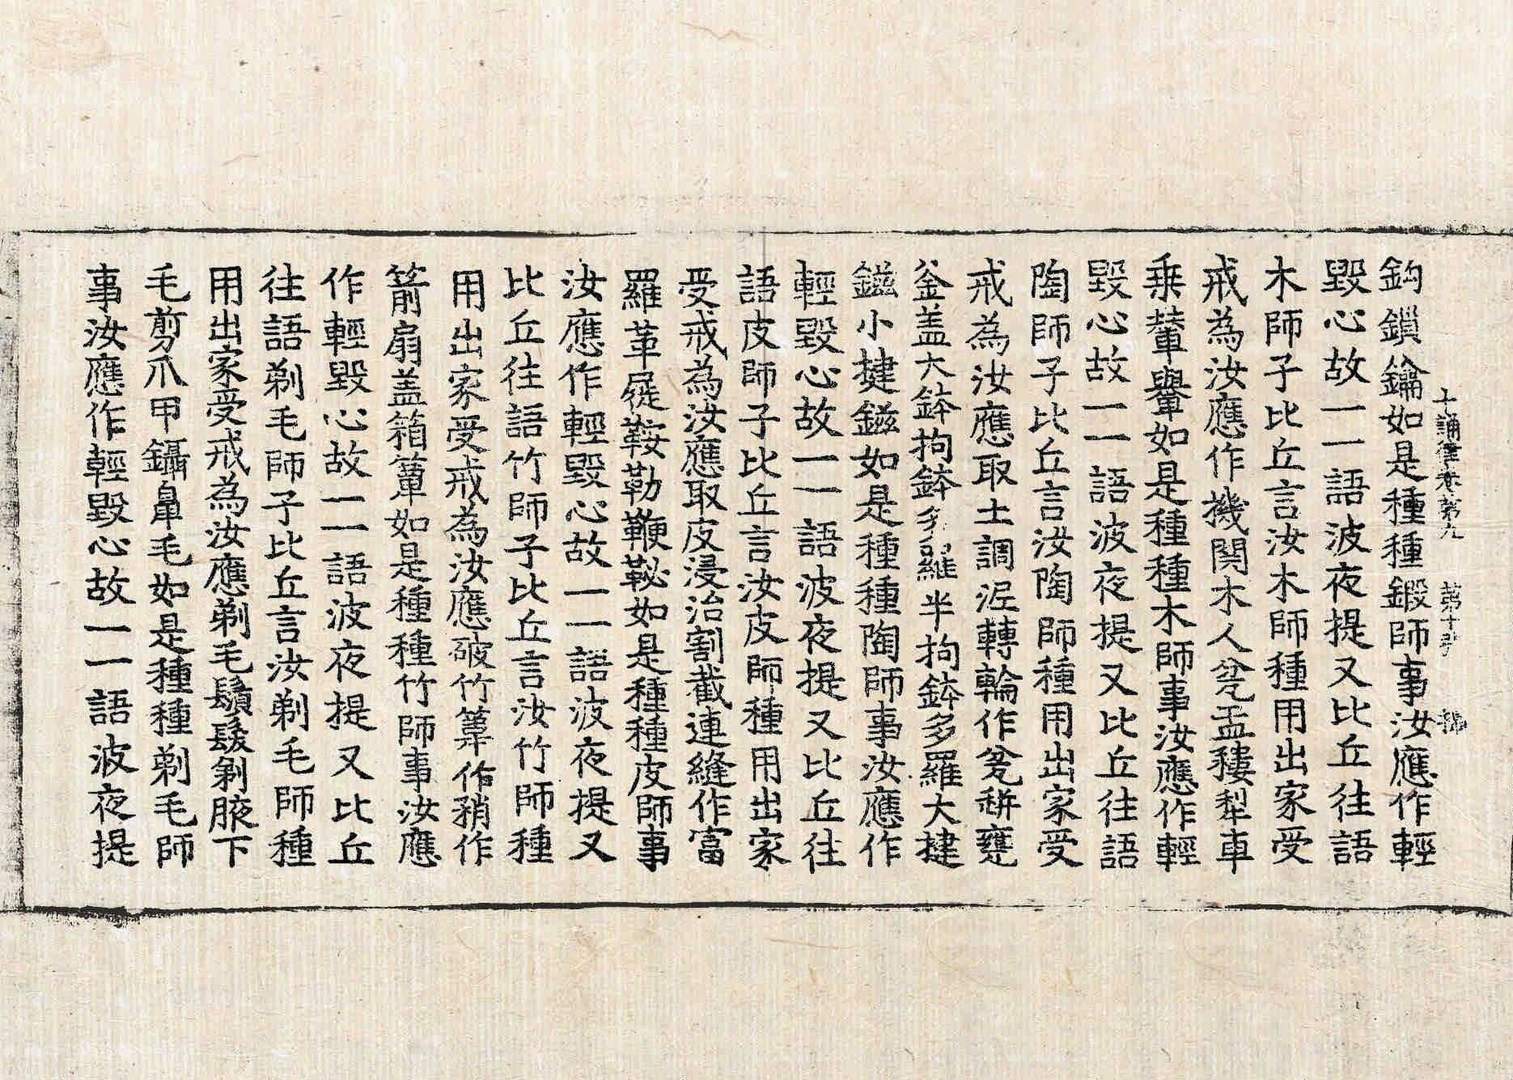 十誦律卷第九 第十張 號
鈎鎖鑰如是種種鍛師事汝應作輕
毀心故一一語波夜提又比丘往語
木師子比丘言汝木師種用出家受
戒為汝應作機關木人㼜盂耬犁車
乗輦轝如是種種木師事汝應作輕
毀心故一一語波夜提又比丘往語
陶師子比丘言汝陶師種用出家受
戒為汝應取土調泥轉輪作㼜缾甕
釜盖大鉢拘鉢多羅半拘鉢多羅大揵
鎡小揵鎡如是種種陶師事汝應作
輕毀心故一一語波夜提又比丘往
語皮師子比丘言汝皮師種用出家
受戒為汝應取皮浸治割截連縫作富
羅革屣鞍勒鞭鞑如是種種皮師事
汝應作輕毀心故一一語波夜提又
比丘往語竹師子比丘言汝竹師種
用出家受戒為汝應破竹篾作矟作
箭扇盖箱簟如是種種竹師事汝應
作輕毀心故一一語波夜提又比丘
往語剃毛師子比丘言汝剃毛師種
用出家受戒為汝應剃毛鬚髮剃腋下
毛剪爪甲鑷鼻毛如是種種剃毛師
事汝應作輕毀心故一一語波夜提